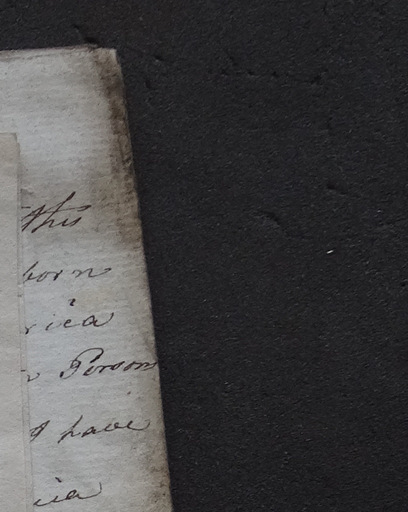 this
born
rica
Person
have
ica